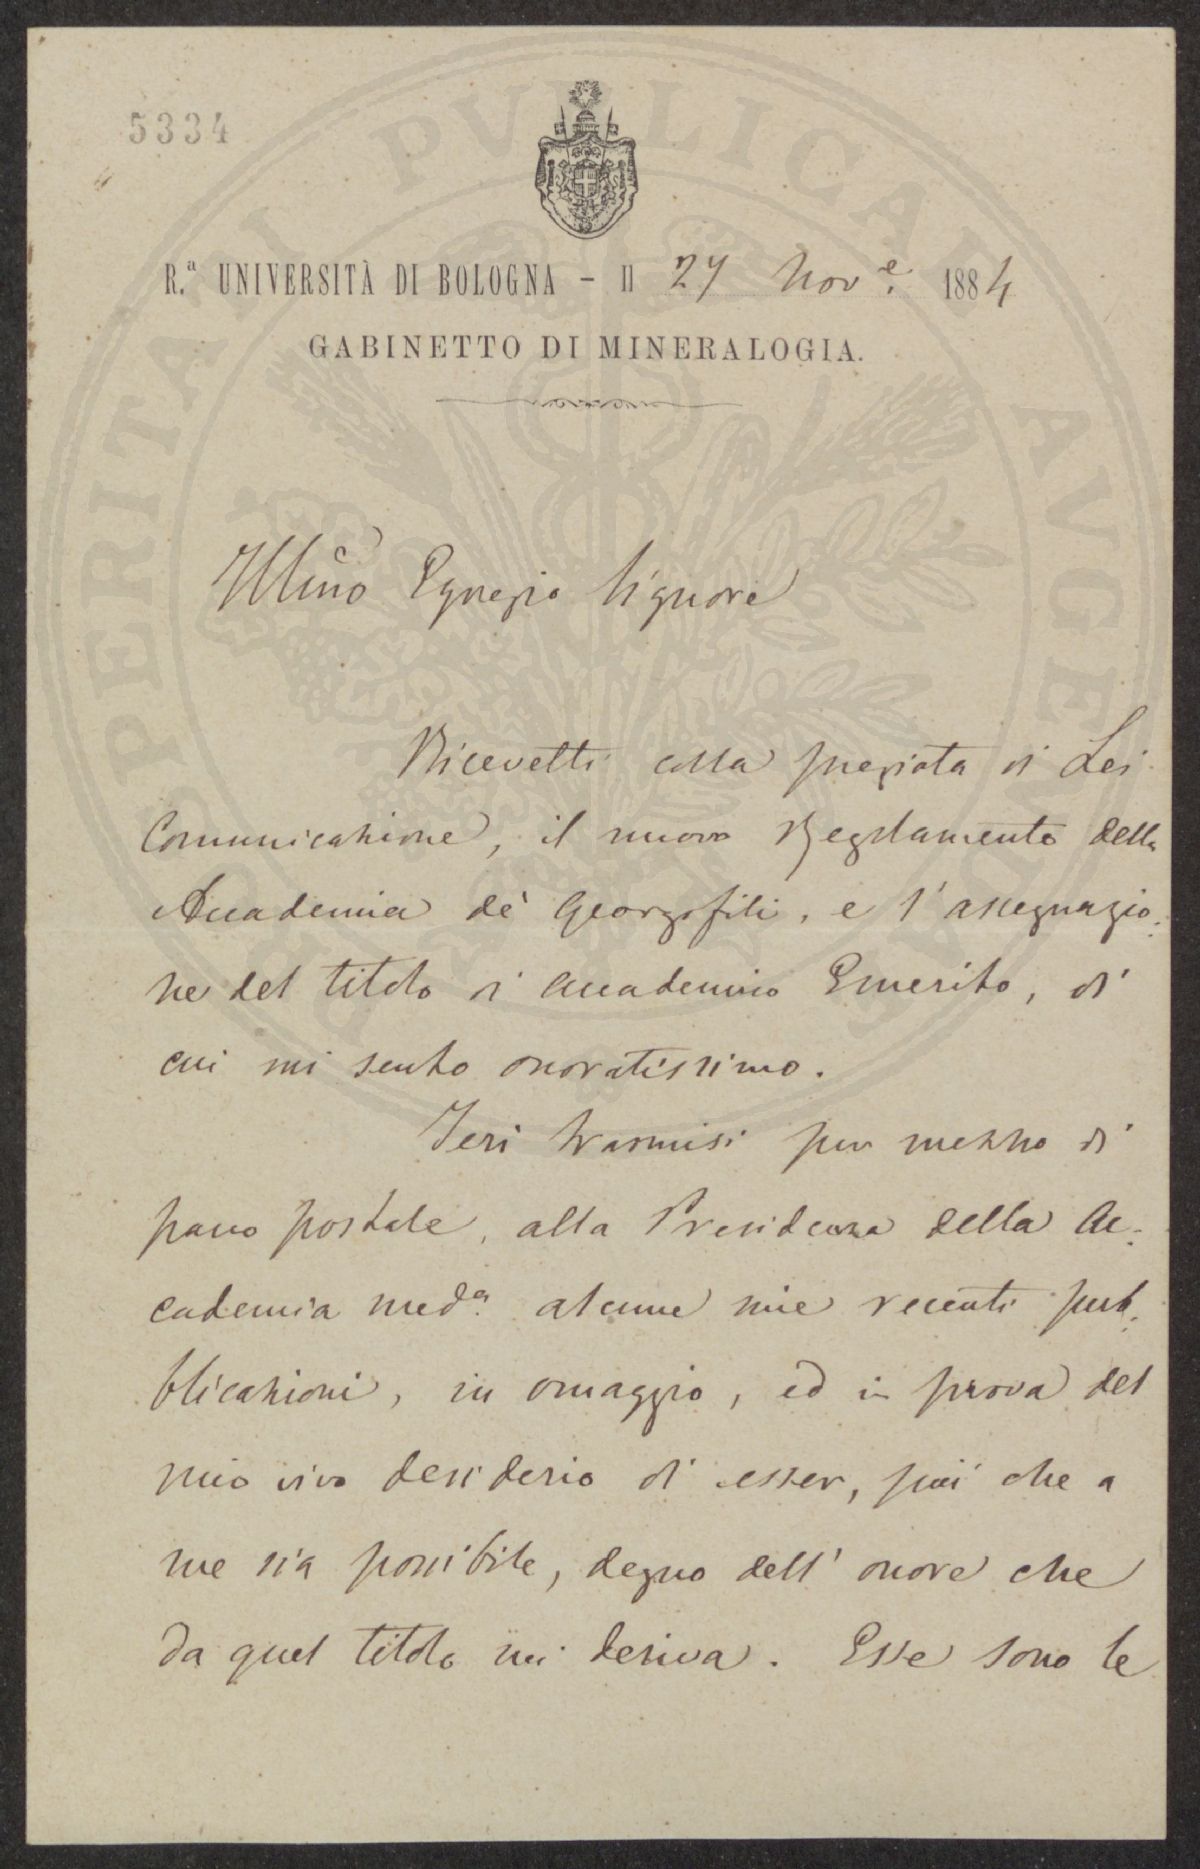 5334
R.ª UNIVERSITÀ DI BOLOGNA - Il 27 Nov.e 1884
GABINETTO DI MINERALOGIA.
Illmo Egregio Signore
Ricevetti colla pregiata di Lei
Comunicazione, il nuovo Regolamento della
Accademia de' Georgofili, e l'assegnazio-
ne del titolo di Accademico Emerito, di
cui mi sento onoratissimo.
Ieri trasmisi per mezzo di
pacco postale, alla Presidenza della Ac-
cademia med.a alcune mie recenti pub-
blicazioni, in omaggio, ed in prova del
mio vivo desiderio di esser, più che a
me sia possibile, degno dell' onore che
da quel titolo mi deriva. Esse sono le
PROSPERITATI PVBLICAE AVGENDAE